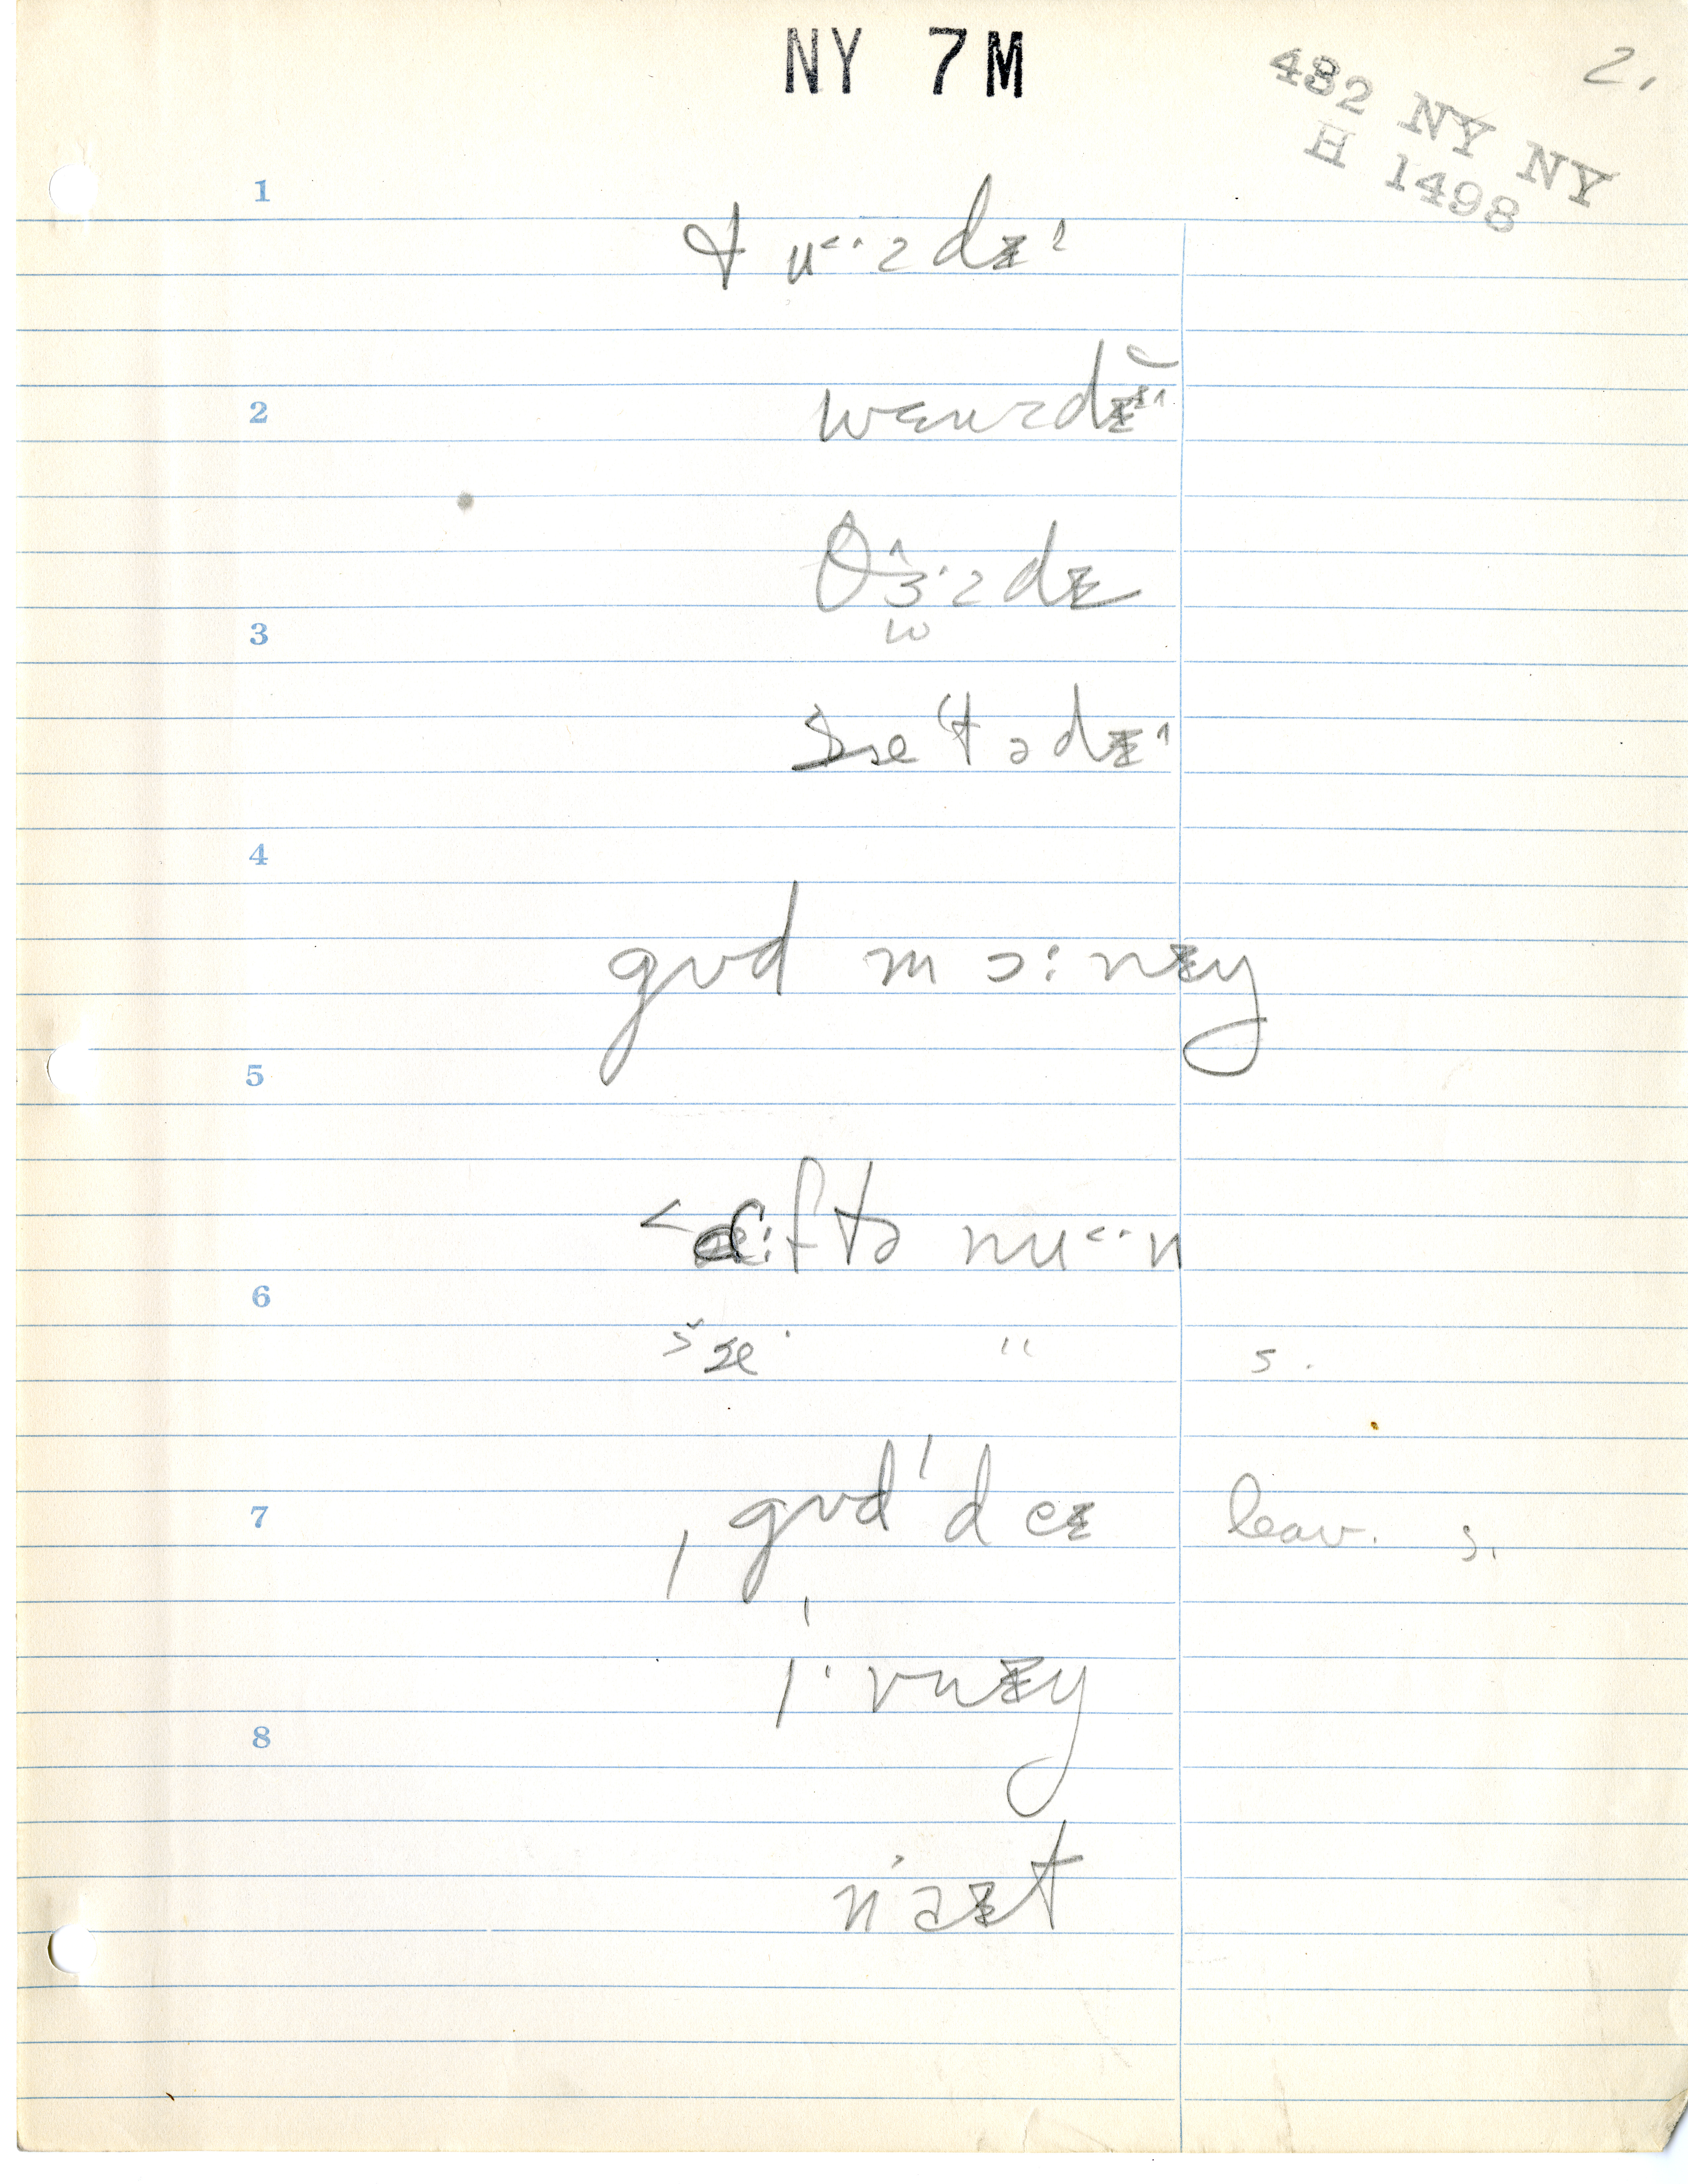 NY 7M
2.
482 NY NY
H 1498
1
tu˂·zdɪ˄
2
wɛnzdɪ˄
θɜ˄·zdɪ
3
sæˤtədɪ˄
4
gʊd mɔ:nɪŋ
5
6
˂ɑ:ftə nu˂·n
æ· " s.
7
gʊd'deɪ leav. s.
i·vnɪŋ
8
naɪt